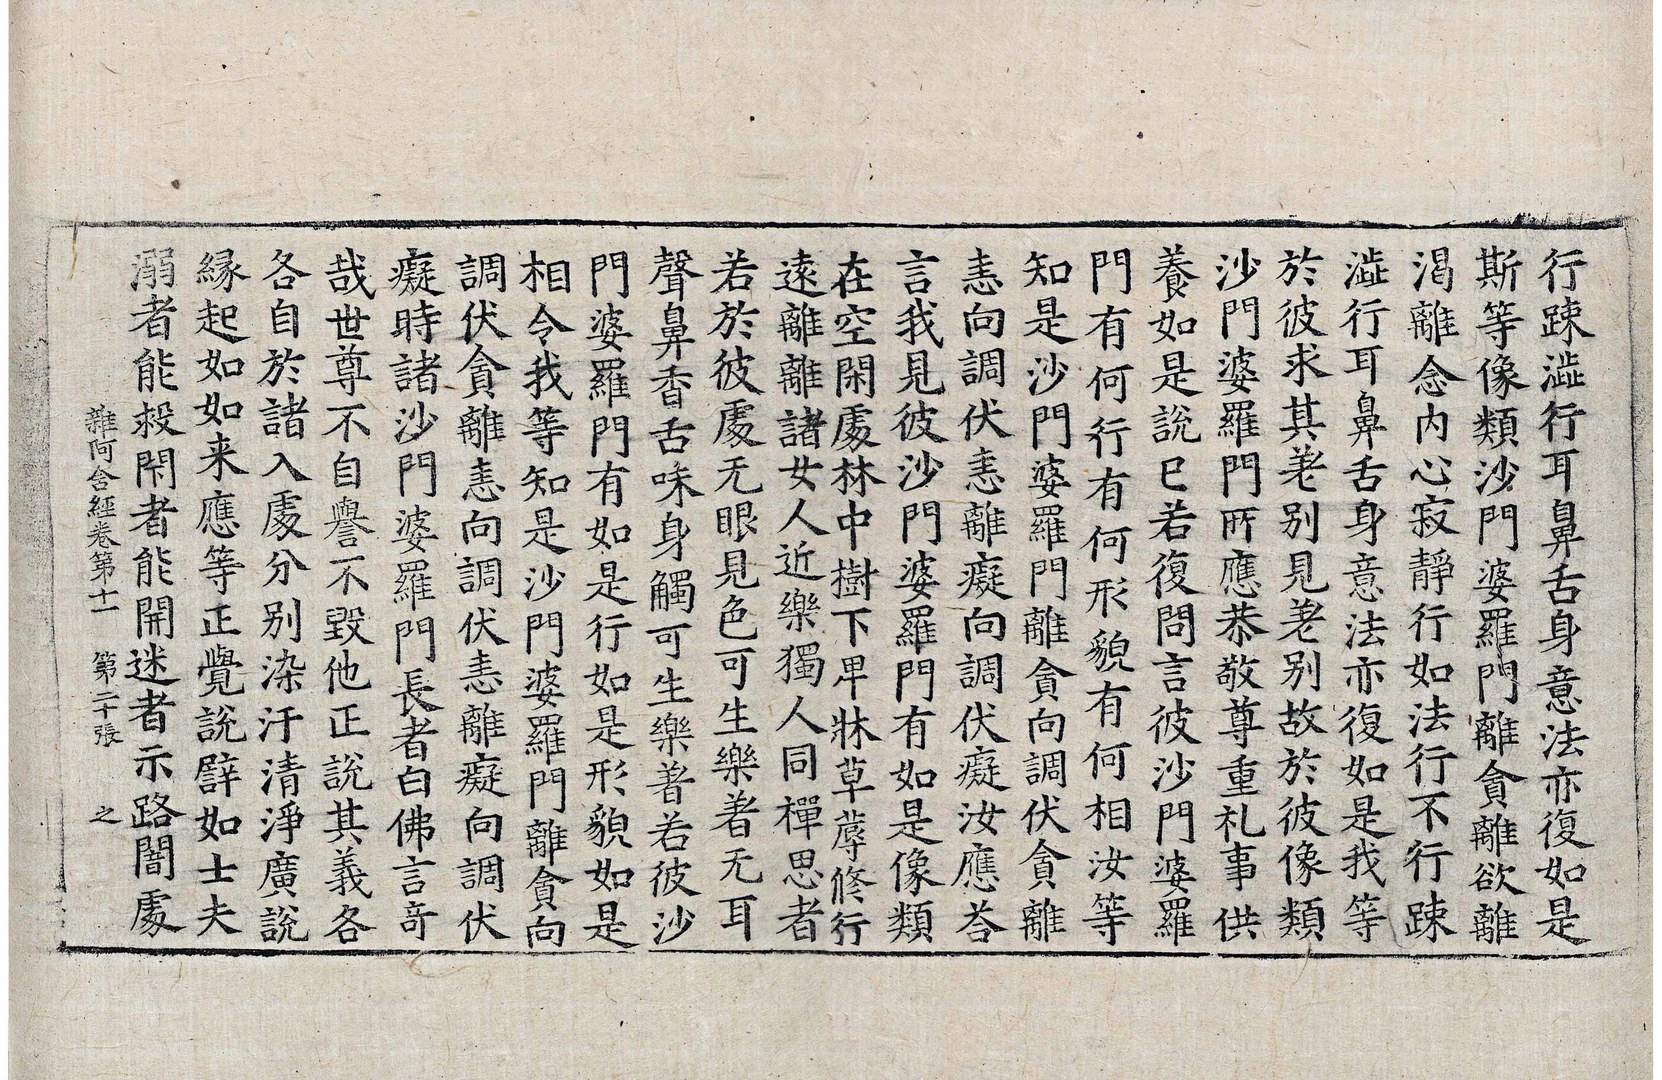 行踈澁行耳鼻舌身意法亦復如是
斯等像類沙門婆羅門離貪離欲離
渴離念內心寂靜行如法行不行踈
澁行耳鼻舌身意法亦復如是我等
於彼求其差别見差别故於彼像類
沙門婆羅門所應恭敬尊重礼事供
養如是說已若復問言彼沙門婆羅
門有何行有何形貌有何相汝等
知是沙門婆羅門離貪向調伏貪離
恚向調伏恚離癡向調伏癡汝應荅
言我見彼沙門婆羅門有如是像類
在空閑處林中樹下卑牀草蓐修行
遠離離諸女人近樂獨人同禪思者
若於彼處无眼見色可生樂著无耳
聲鼻香舌味身觸可生樂著若彼沙
門婆羅門有如是行如是形貌如是
相令我等知是沙門婆羅門離貪向
調伏貪離恚向調伏恚離癡向調伏
癡時諸沙門婆羅門長者白佛言奇
哉世尊不自譽不毀他正說其義各
各自於諸入處分别染汙清淨廣說
緣起如如来應等正覺說譬如士夫
溺者能救閉者能開迷者示路闇處
雜阿含經卷第十一 第二十張 之